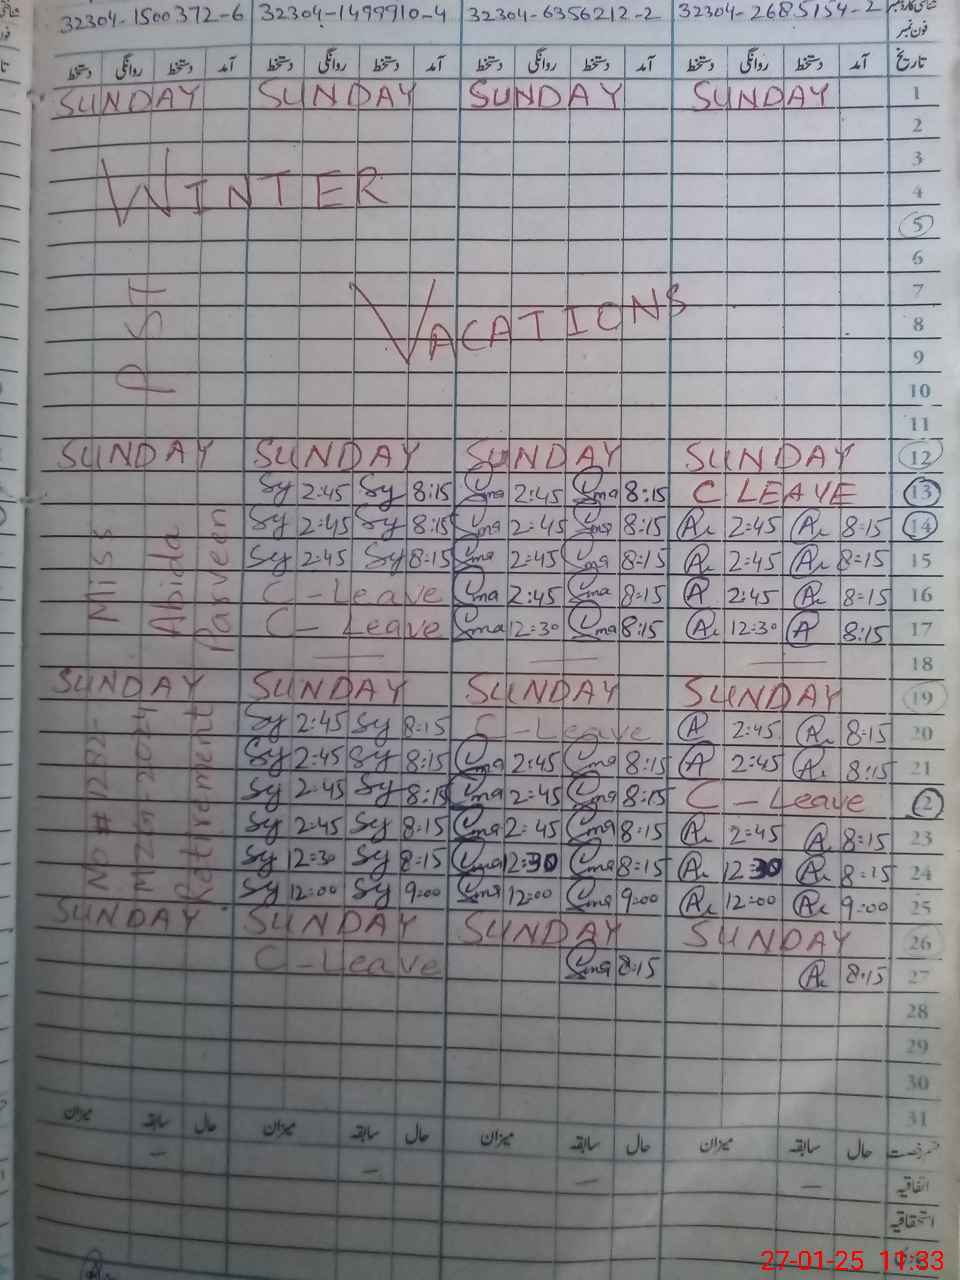 32304-1500372-6 32304-1499910-4 32304-6356212-2 32304-2685154-2
فون نمبر
دستخط روانگی دستخط آمد دستخط روانگی دستخط آمد دستخط روانگی دستخط آمد دستخط روانگی دستخط آمد تاریخ
SUNDAY SUNDAY SUNDAY SUNDAY 1
2
3
WINTER 4
5
6
PST 7
VACATIONS 8
9
10
11
SUNDAY SUNDAY SUNDAY SUNDAY 12
Sy 2:45 Sy 8:15 Sma 2:45 Sma 8:15 C LEAVE 13
Sy 2:45 Sy 8:15 Sma 2:45 Sma 8:15 A 2:45 A 8:15 14
Sy 2:45 Sy 8:15 Sma 2:45 Sma 8:15 A 2:45 A 8:15 15
C-Leave Sma 2:45 Sma 8:15 A 2:45 A 8:15 16
C-Leave Sma 12:30 Sma 8:15 A 12:30 A 8:15 17
Miss Abida Parveen
18
SUNDAY SUNDAY SUNDAY SUNDAY 19
Sy 2:45 Sy 8:15 C-Leave A 2:45 A 8:15 20
Sy 2:45 Sy 8:15 Sma 2:45 Sma 8:15 A 2:45 A 8:15 21
Sy 2:45 Sy 8:15 Sma 2:45 Sma 8:15 C-Leave 2
Sy 2:45 Sy 8:15 Sma 2:45 Sma 8:15 A 2:45 A 8:15 23
Sy 12:30 Sy 8:15 Sma 12:30 Sma 8:15 A 12 30 A 8:15 24
Sy 12:00 Sy 9:00 Sma 12:00 Sma 9:00 A 12:00 A 9:00 25
Retirement
SUNDAY SUNDAY SUNDAY SUNDAY 26
C-Leave Sma 8:15 A 8:15 27
28
29
30
31
میزان سابقہ حال میزان سابقہ حال میزان سابقہ حال میزان سابقہ حال
اتفاقیہ
استحقاقیہ
27-01-25 11:33